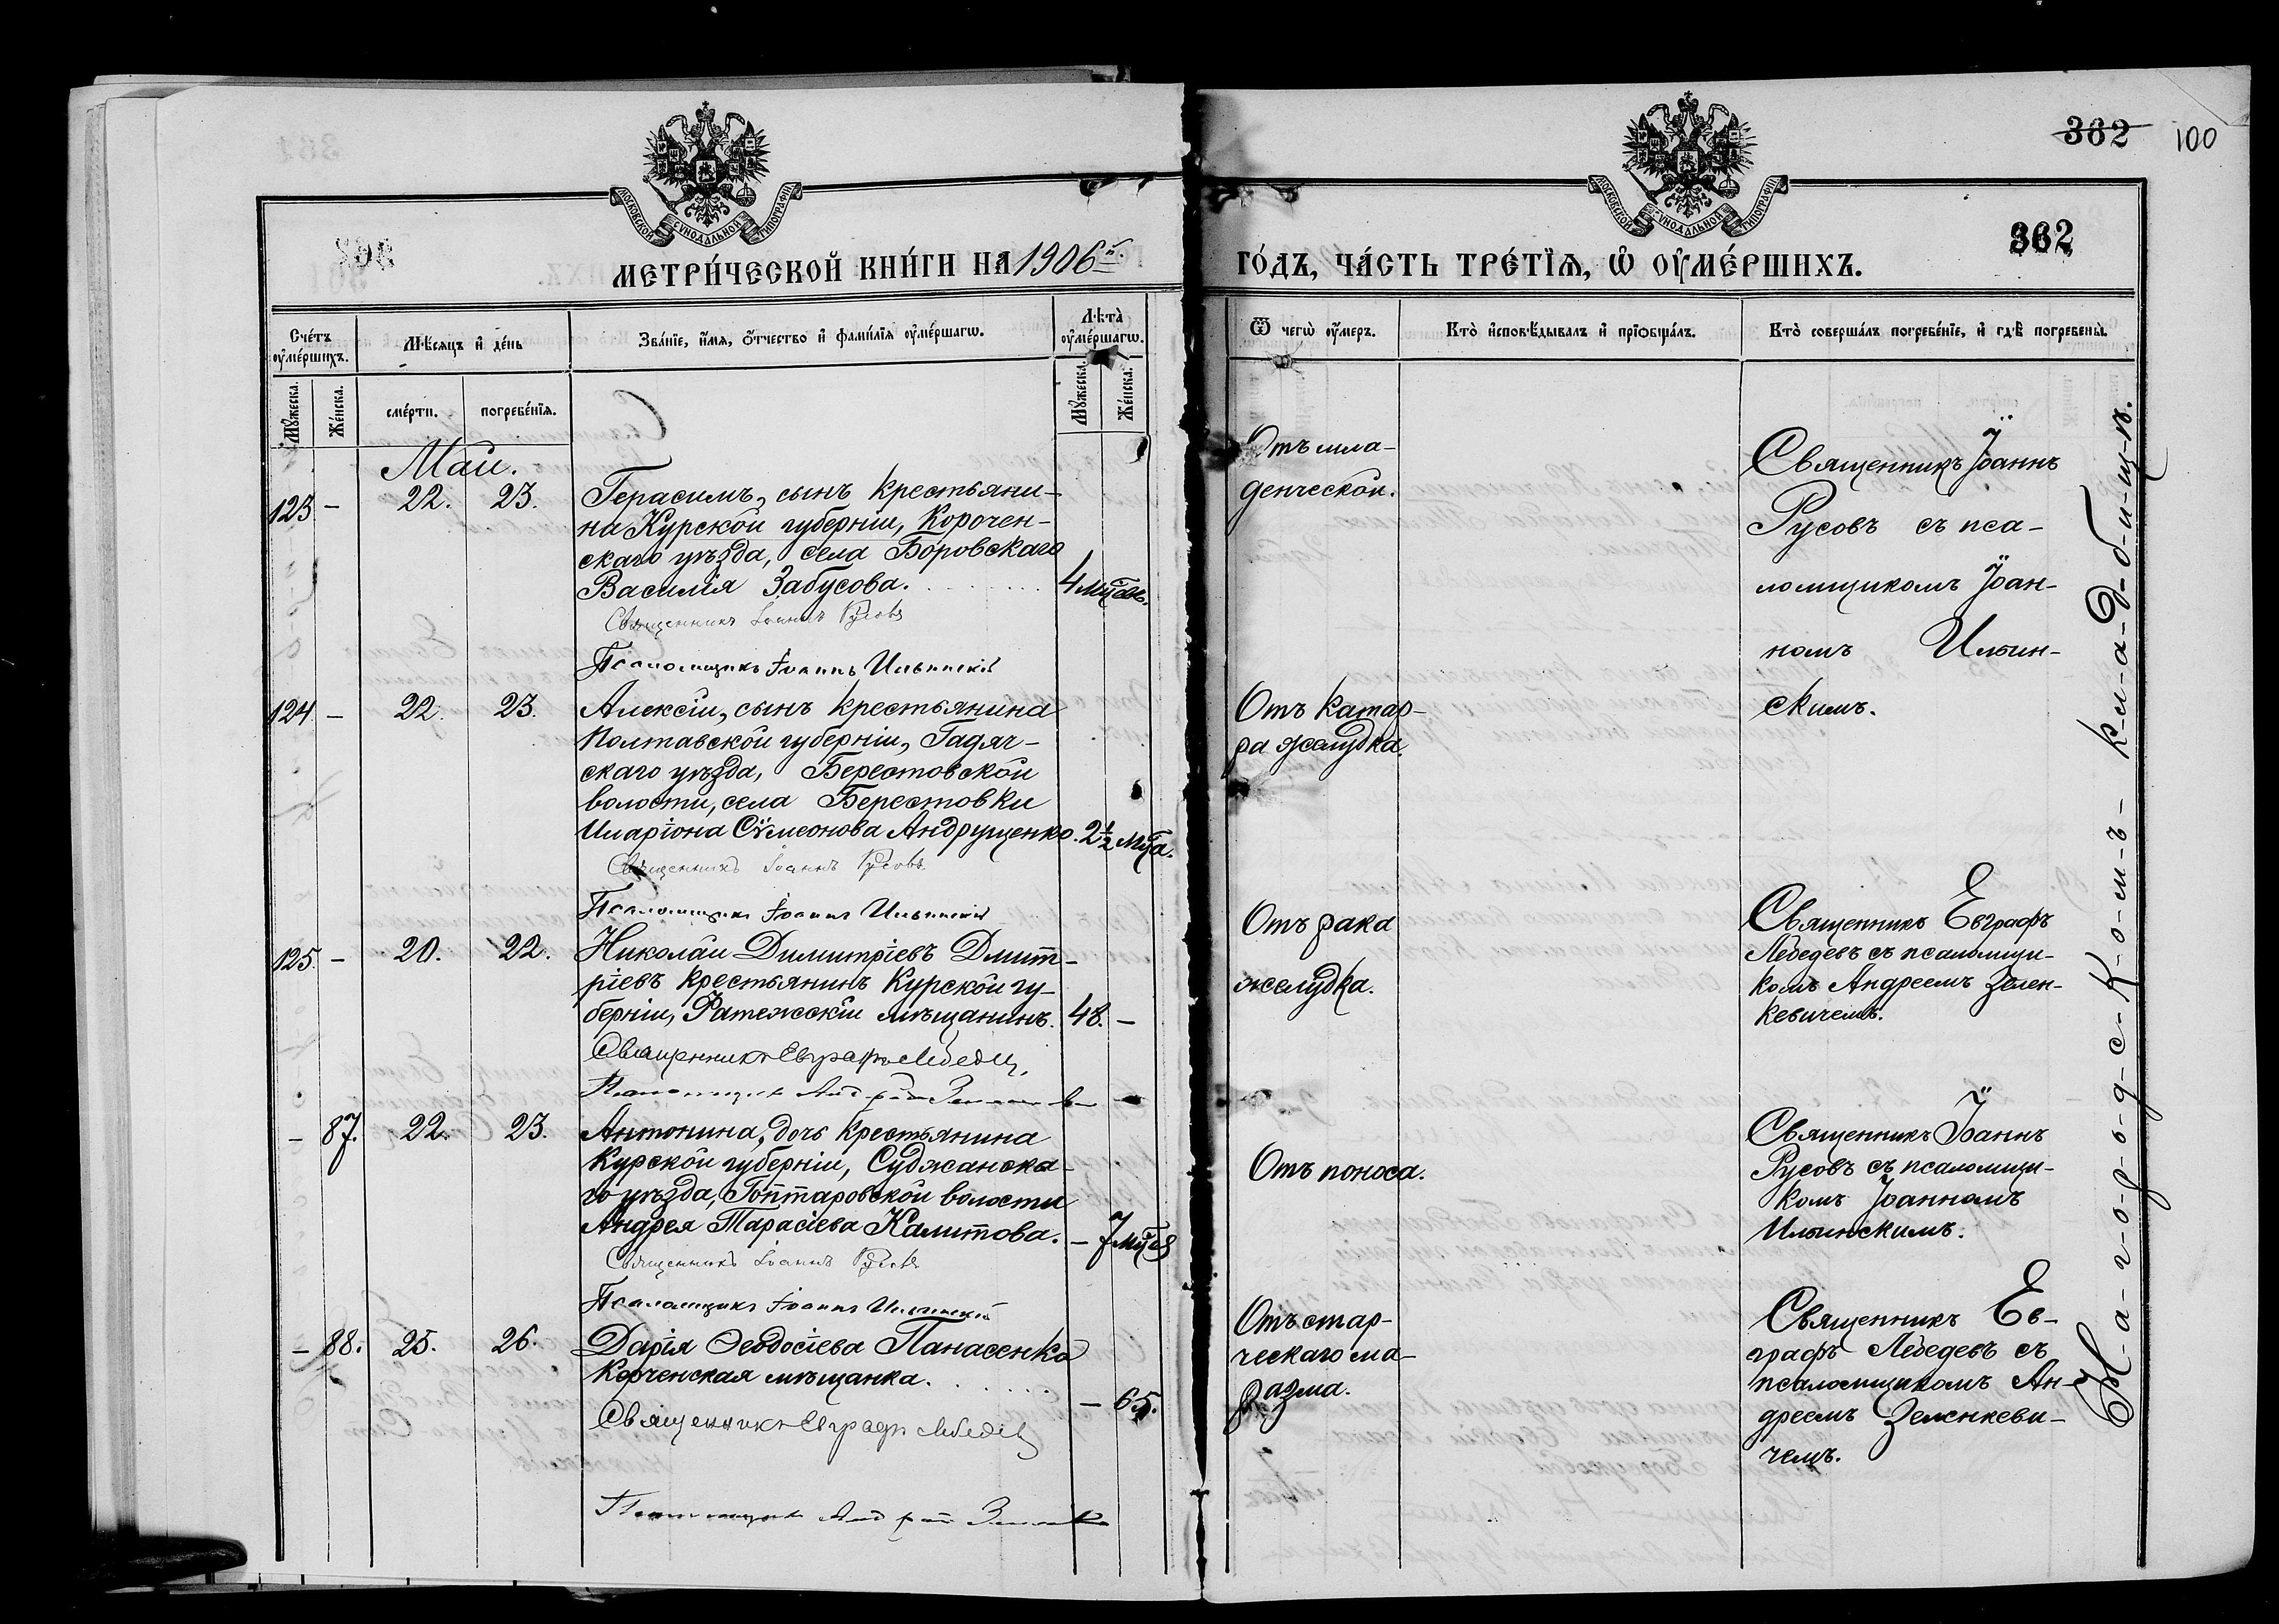 362 100
МОСКОВСКОЙ СУНОДАЛЬНОЙ ТИПОГРАФІИ
МОСКОВСКОЙ СУНОДАЛЬНОЙ ТИПОГРАФІИ
362
МЕТРИ́ЧЕСКОЙ КНИ́ГИ НА 1906й.
ГО́ДЪ, ЧА́СТЬ ТРЕ́ТІѦ, Ѡ ОУМЕ́РШИХЪ.
Сче́тъ оуме́ршихъ.
Мѣ́сяцъ и де́нь
Зва́ніе, и́мя, о́тчество и фами́лія оуме́ршагѡ.
Лѣта̀ оуме́ршагѡ.
Ѿ чегѡ̀ оу́меръ.
Кто̀ исповѣ́дывалъ и пріѡбща́лъ.
Кто̀ соверша́лъ погребе́ніе, и гдѣ̀ погребены̀.
Мꙋ́жеска.
Же́нска.
сме́рти.
погребе́нія.
Мꙋ́жеска.
Же́нска.
Май.
123. – 22. 23. Герасимъ, сынъ крестьяни-
на Курской губерніи, Корочен-
скаго уѣзда, села Боровскаго
Василія Забусова. 4 мцсв.
Священникъ Іоаннъ Русовъ
Псаломщикъ Іоаннъ Ильинскій
Отъ мла-
денческой.
Священникъ Іоаннъ
Русовъ съ пса-
ломщикомъ Іоан-
номъ Ильин-
скимъ.
124. – 22. 23. Алексій, сынъ крестьянина
Полтавской губерніи, Гадяч-
скаго уѣзда, Берестовской
волости, села Берестовки
Иларіона Сѵмеонова Андрущенко. 2½ мца.
Священникъ Іоаннъ Русовъ.
Псаломщикъ Іоаннъ Ильинскій
Отъ катар-
ра желудка.
125. – 20. 22. Николай Димитріевъ Дмит-
ріевъ крестьянинъ Курской гу-
берніи, Фатежскій мѣщанинъ. 48. –
Священникъ Евграфъ Лебедевъ
Псаломщикъ Андрей
Отъ рака
желудка.
Священникъ Евграфъ
Лебедевъ съ псаломщи-
комъ Андреемъ Зелен-
кевичемъ.
– 87. 22. 23. Антонина, дочь крестьянина
Курской губерніи, Суджанска-
го уѣзда, Гоптаровской волости
Андрея Тарасіева Калитова. – 7 мцев
Священникъ Іоаннъ Русовъ
Псаломщикъ Іоаннъ Ильинскій
Отъ поноса.
Священникъ Іоаннъ
Русовъ съ псаломщи-
комъ Іоанномъ
Ильинскимъ.
– 88. 25. 26. Дарія Ѳеодосіева Панасенко
Корченская мѣщанка. – 65.
Священникъ Евграфъ Лебедевъ
Псаломщикъ Андрей
Отъ стар-
ческаго ма-
разма.
Священникъ Ев-
графъ Лебедевъ съ
псаломщикомъ Ан-
дреемъ Зеленкеви-
чемъ.
На-г-о-р-о-д-с-к-о-м-ъ- к-л-а-д-б-и-щ-ѣ.